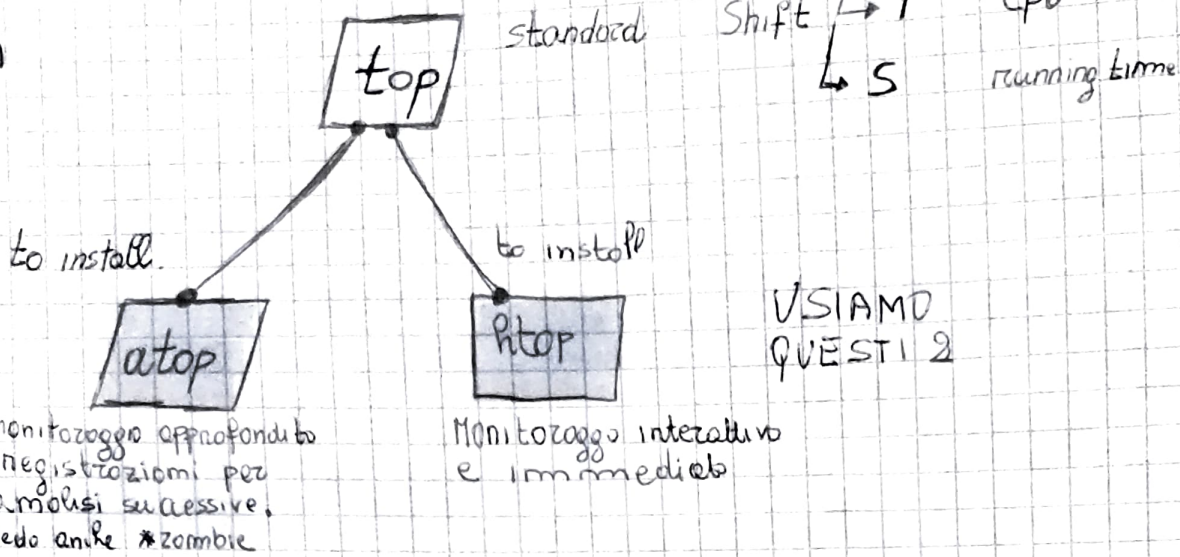 standard
Shift
top
S running time
to install.
to install
atop
htop
USIAMO
QUESTI 2
monitoraggio approfondito
registrazioni per
analisi successive.
vedo anche *zombie
Monitoraggo interattivo
e immediato